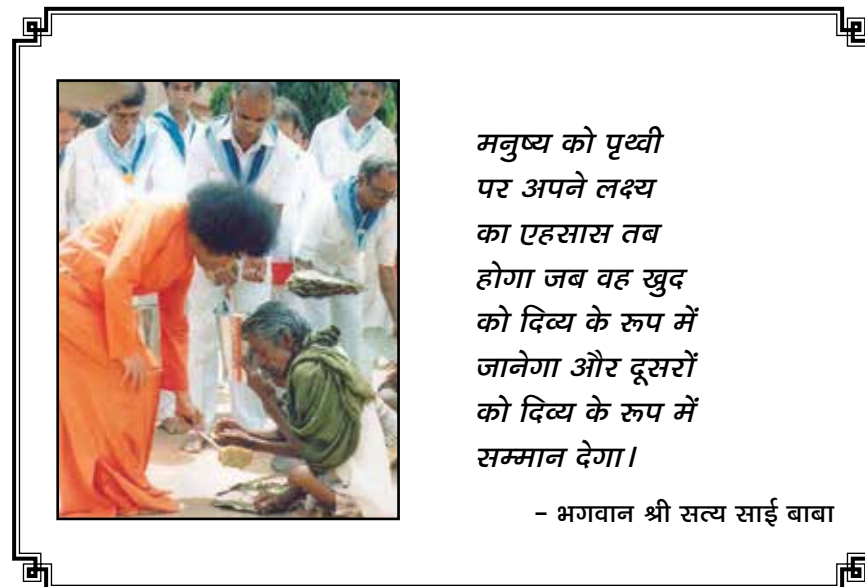 मनुष्य को पृथ्वी
पर अपने लक्ष्य
का एहसास तब
होगा जब वह खुद
को दिव्य के रूप में
जानेगा और दूसरों
को दिव्य के रूप में
सम्मान देगा।
- भगवान श्री सत्य साई बाबा